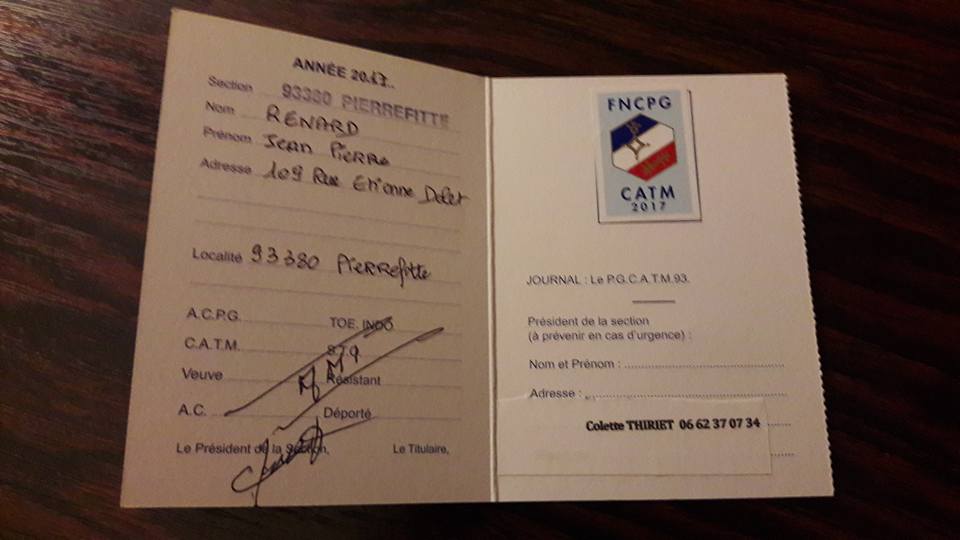 ANNÉE 2017..
Section 93380 PIERREFITTE
Nom RENARD
Prénom Jean Pierre
Adresse 109 Rue Etienne Dolet
Localité 93380 Pierrefitte
A.C.P.G. TOE. INDO
C.A.T.M.
Veuve Résistant
A.C. Déporté
Le Président de la Section, Le Titulaire,
FNCPG
CATM
2017
JOURNAL : Le P.G.C.A.T.M.93.
Président de la section
(à prévenir en cas d'urgence) :
Nom et Prénom :
Adresse :
Colette THIRIET 06 62 37 07 34